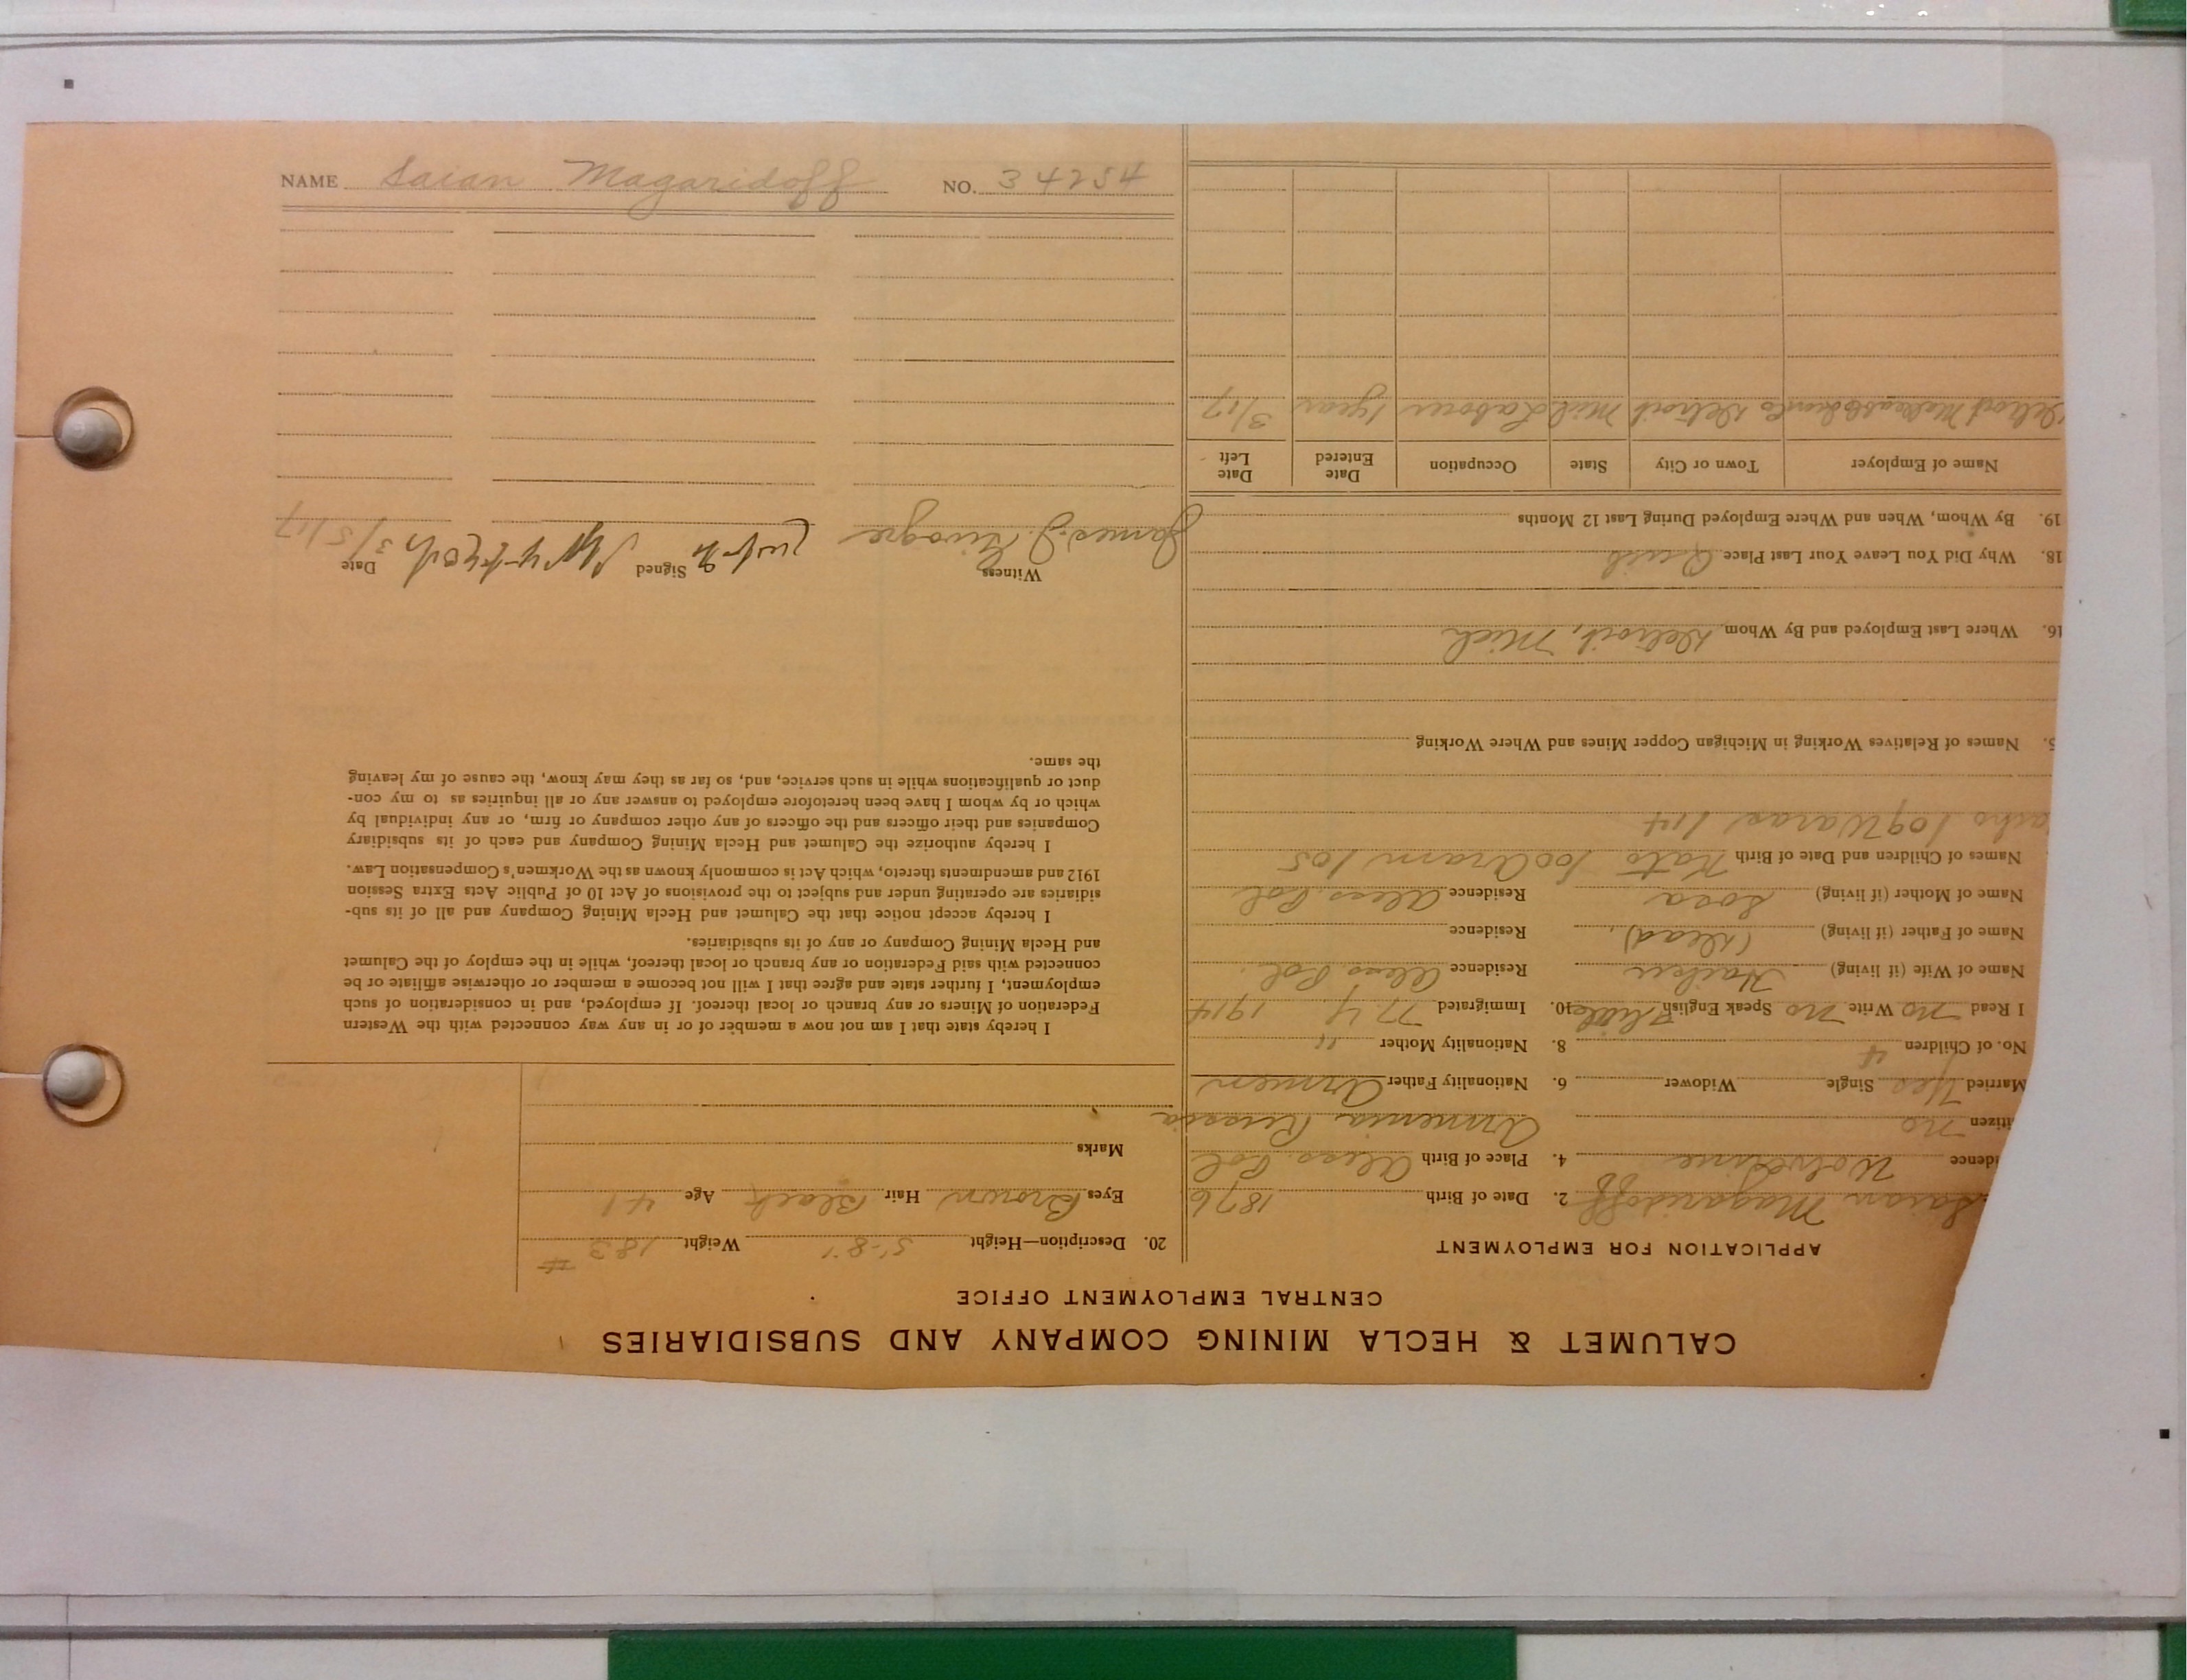 CALUMET & HECLA MINING COMPANY AND SUBSIDIARIES
CENTRAL EMPLOYMENT OFFICE
APPLICATION FOR EMPLOYMENT
Saian Magaridoff 2. Date of Birth 1876
idence Wolverine 4. Place of Birth Alexs. Pol
itizen no Armenia Russia
Married Yes Single Widower 6. Nationality Father Armen
No. of Children 4 8. Nationality Mother "
I Read no Write no Speak English 10. Immigrated N.Y 1914
Name of Wife (if living) Residence Alexs. Pol.
Name of Father (if living) (Dead) Residence
Name of Mother (if living) Sora Residence Alexs. Pol
Names of Children and Date of Birth Nato /00 Aram /05
/09 Waras /14
5. Names of Relatives Working in Michigan Copper Mines and Where Working
16. Where Last Employed and By Whom Detroit, Mich
18. Why Did You Leave Your Last Place Quit
19. By Whom, When and Where Employed During Last 12 Months
Name of Employer Town or City State Occupation Date Entered Date Left
Detroit Malleable Iron Co Detroit Mich Labour 1 year 3/17
20. Description—Height 5'-8" Weight 183 #
Eyes Brown Hair Black Age 41
Marks
I hereby state that I am not now a member of or in any way connected with the Western
Federation of Miners or any branch or local thereof. If employed, and in consideration of such
employment, I further state and agree that I will not become a member or otherwise affiliate or be
connected with said Federation or any branch or local thereof, while in the employ of the Calumet
and Hecla Mining Company or any of its subsidiaries.
I hereby accept notice that the Calumet and Hecla Mining Company and all of its sub-
sidiaries are operating under and subject to the provisions of Act 10 of Public Acts Extra Session
1912 and amendments thereto, which Act is commonly known as the Workmen's Compensation Law.
I hereby authorize the Calumet and Hecla Mining Company and each of its subsidiary
Companies and their officers and the officers of any other company or firm, or any individual by
which or by whom I have been heretofore employed to answer any or all inquiries as to my con-
duct or qualifications while in such service, and, so far as they may know, the cause of my leaving
the same.
Witness Signed Date
James J. 3/5/17
NAME Saian Magaridoff NO. 34254